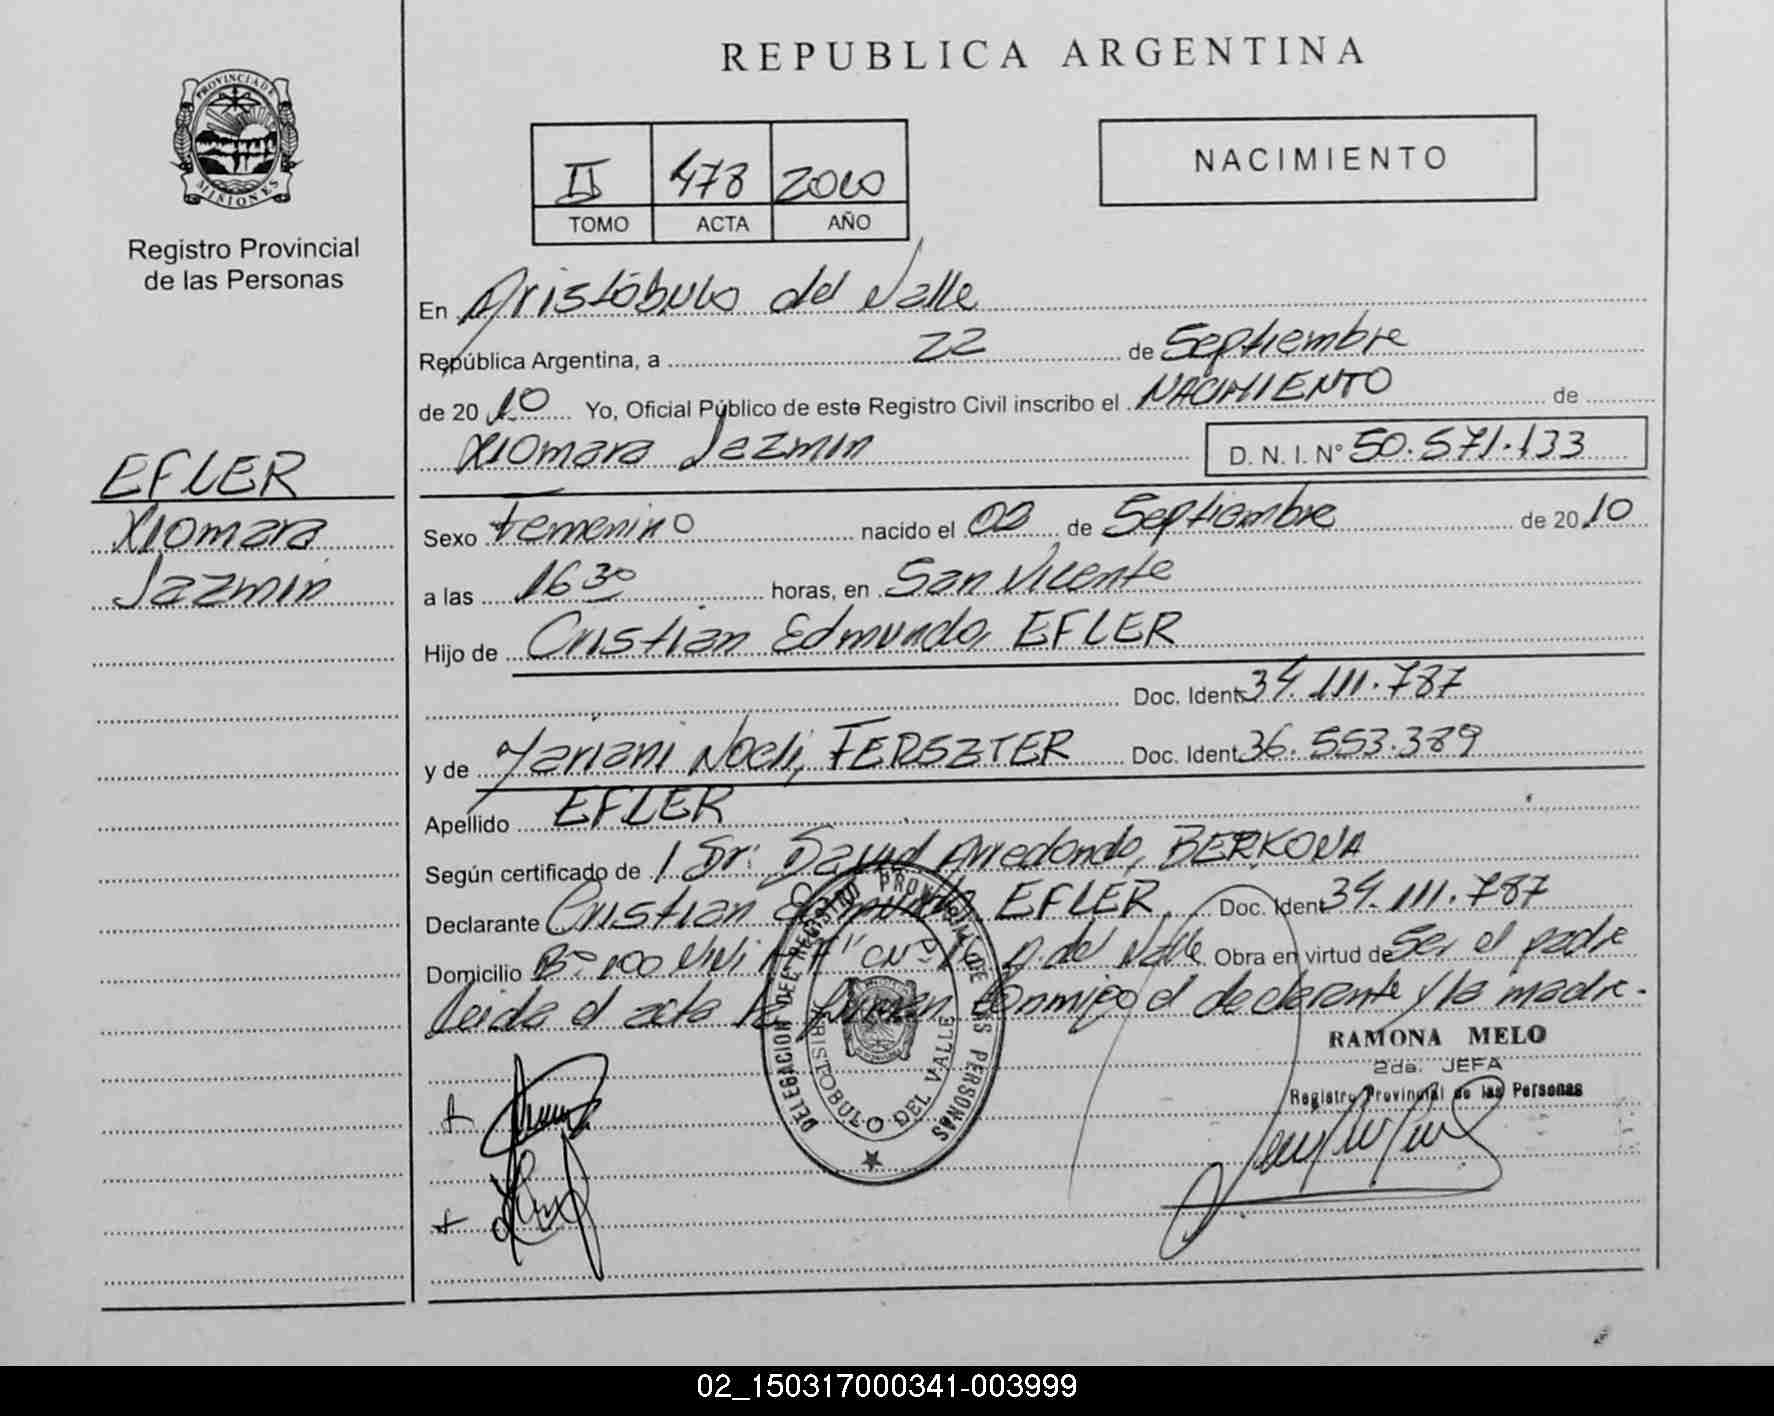 REPUBLICA ARGENTINA
PROVINCIA DE MISIONES
Registro Provincial
de las Personas
II 478 2010
TOMO ACTA AÑO
NACIMIENTO
EFLER
Xiomara
Jazmin
En Aristóbulo del Valle
República Argentina, a 22 de Septiembre
de 2010 Yo, Oficial Público de este Registro Civil inscribo el NACIMIENTO de
Xiomara Jazmin D. N. I. N° 50.571.133
Sexo Femenino nacido el 02 de Septiembre de 2010
a las 16 30 horas, en San Vicente
Hijo de Cristian Edmundo, EFLER
Doc. Ident. 34.111.787
y de Yariani Noeli, FERSZTER Doc. Ident. 36.553.389
Apellido EFLER
Según certificado de Dr. David Arredondo, BERKOVA
Declarante Cristian Edmundo EFLER Doc. Ident. 34.111.787
Domicilio B° 100 Vivi A. del Valle Obra en virtud de Ser el padre
Leida el acta la firman conmigo el declarante y la madre.
DELEGACION DEL REGISTRO PROVINCIAL DE LAS PERSONAS
ARISTOBULO DEL VALLE
RAMONA MELO
2da. JEFA
Registro Provincial de las Personas
02_150317000341-003999